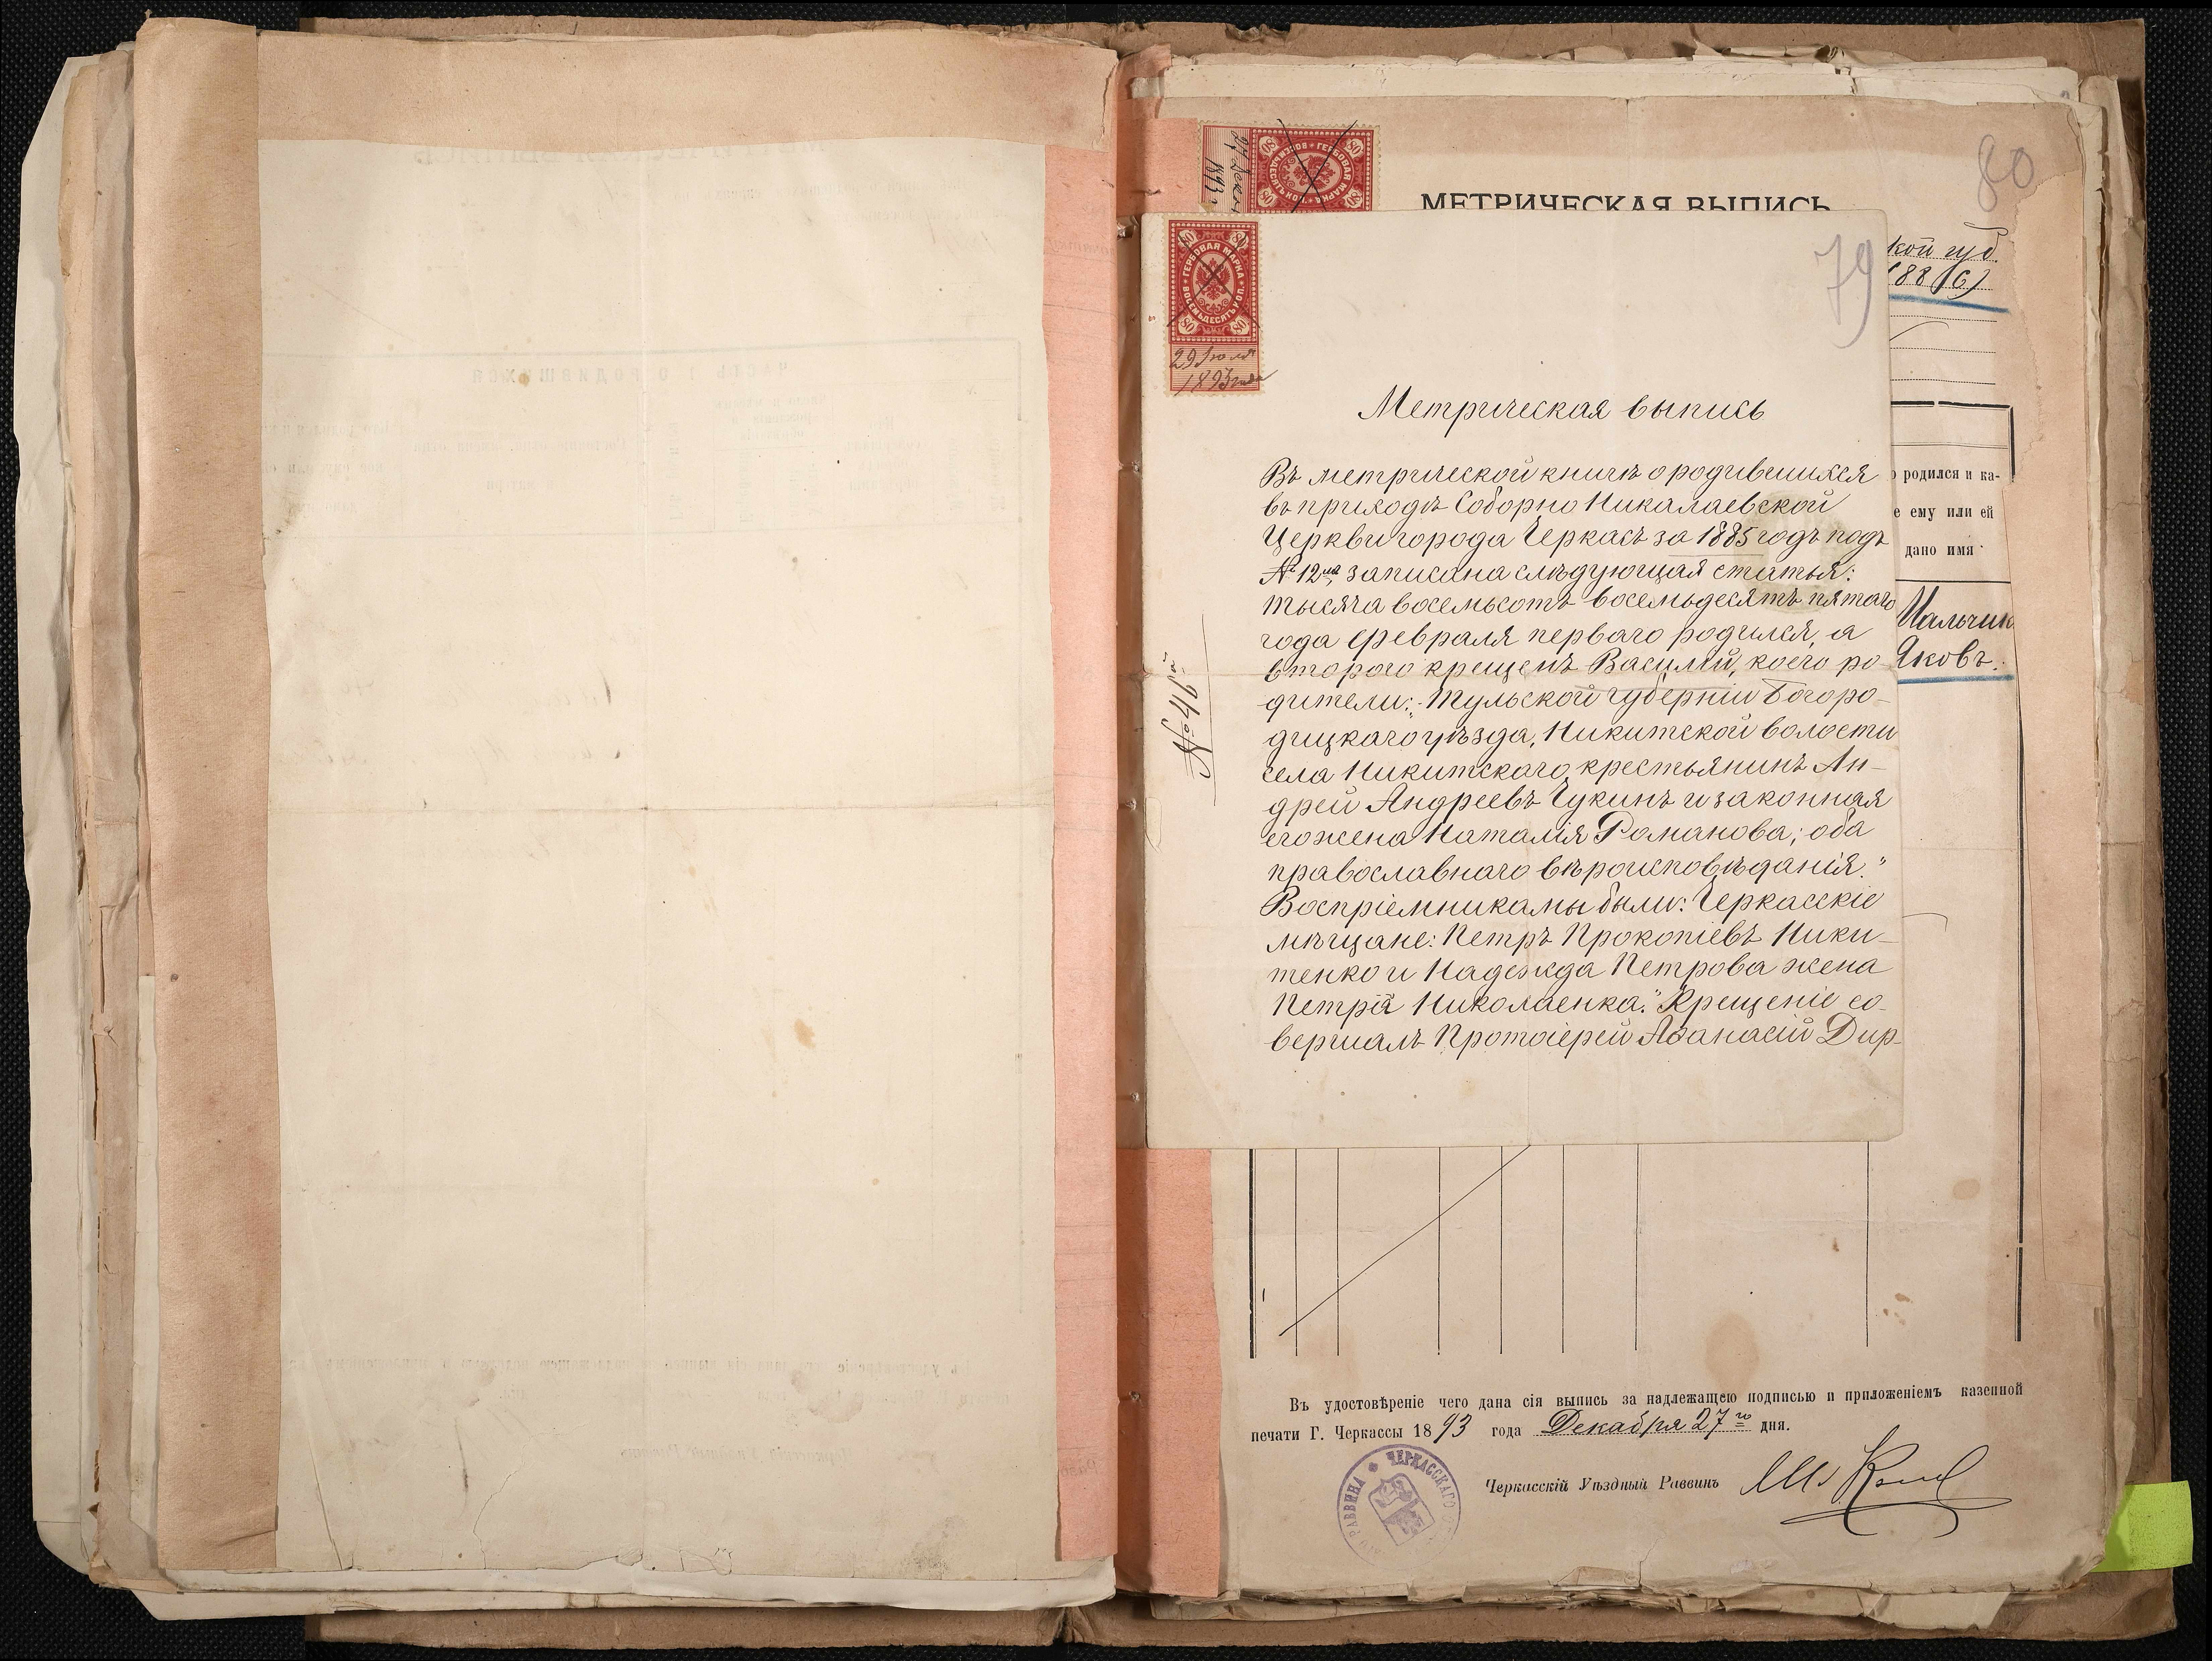 80
27 Декаб
1893 г
ГЕРБОВАЯ МАРКА
80
МЕТРИЧЕСКАЯ ВЫПИСЬ
79
кой губ.
188(6)
ГЕРБОВАЯ МАРКА
ВОСЕМЬДЕСЯТЪ КОП.
80
29 Іюля
1893 года
Метрическая выпись
Въ метрической книгѣ о родившихся
въ приходѣ Соборно Никалаевской
Церкви города Черкасъ за 1885 годъ подъ
№ 12мъ записана слѣдующая статья:
тысяча восемьсотъ восемьдесятъ пятаго
года февраля перваго родился, а
второго крещенъ Василій, коего ро-
дители: „Тульской губерніи Богоро-
дицкаго уѣзда, Никитской волости
села Никитскаго крестьянинъ Ан-
дрей Андреевъ Чукинъ и законная
его жена Наталія Романова; оба
православнаго вѣроисповѣданія."
Воспріемниками были: Черкасскіе
мѣщане: Петръ Прокопіевъ Ники-
тенко и Надежда Петрова жена
Петра Николаенка." Крещеніе со-
вершалъ Протоіерей Аѳанасій Дир-
№ 46й
о родился и ка-
е ему или ей
дано имя
Мальчик
Яковъ.
Въ удостовѣреніе чего дана сія выпись за надлежащею подписью и приложеніемъ казенной
печати Г. Черкассы 1893 года Декабря 27го дня.
Черкасскій Уѣздный Раввинъ
ЧЕРКАССКАГО
РАВВИНА